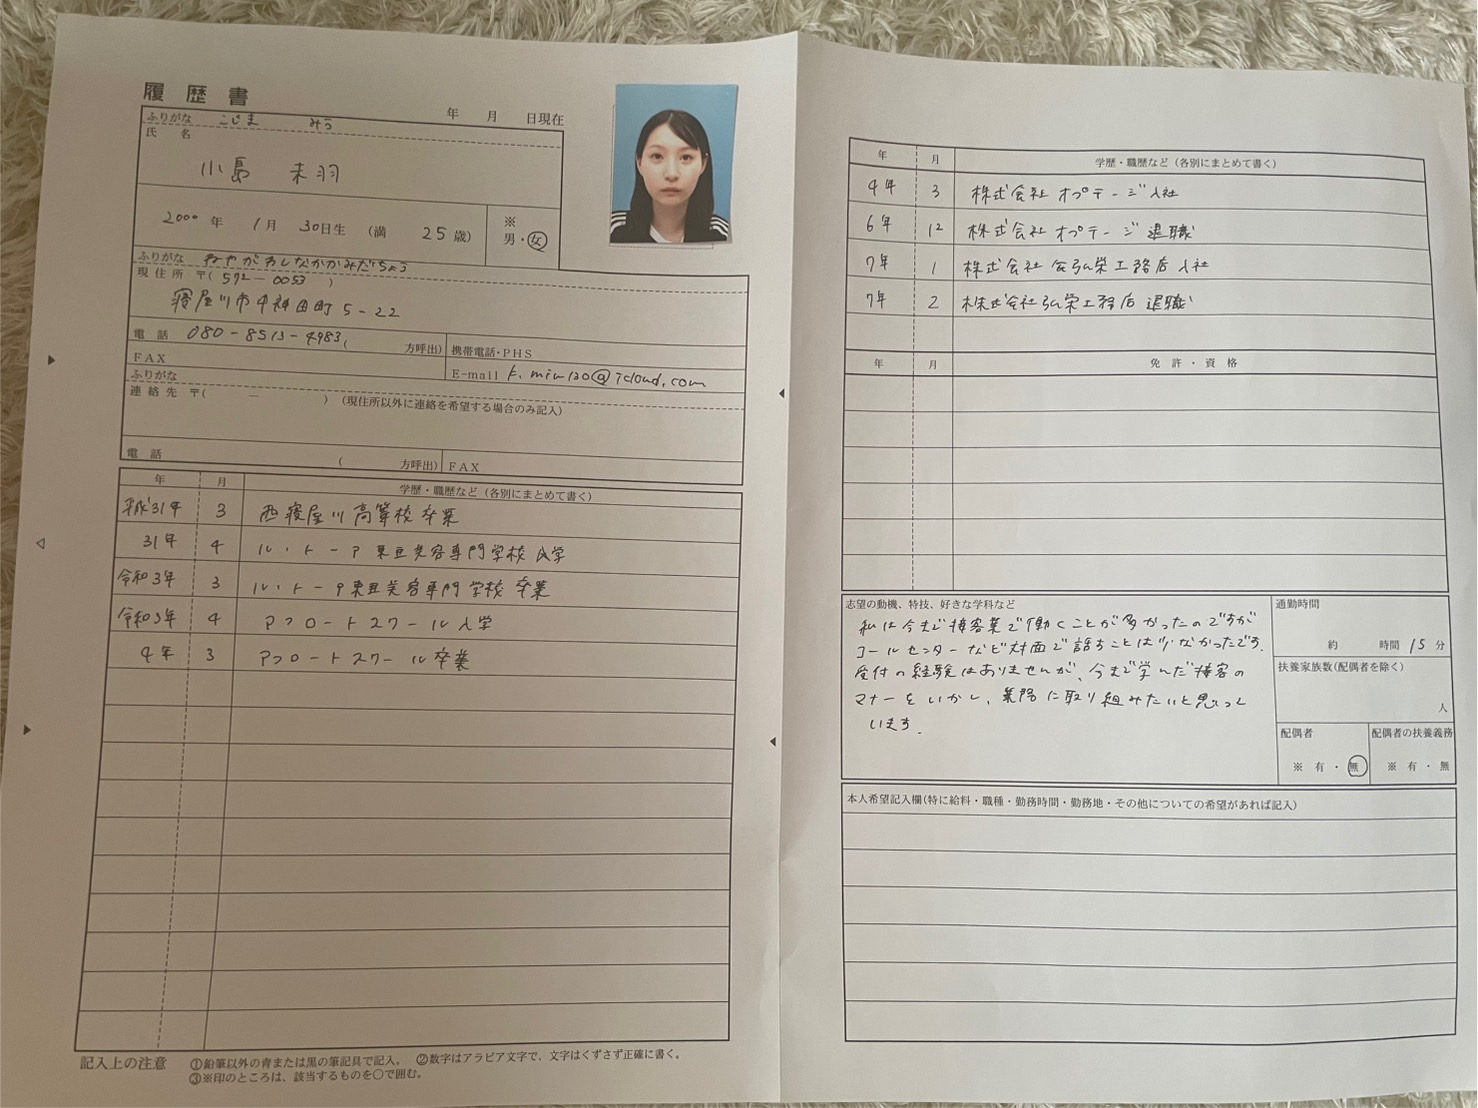 履歴書
年 月 日現在
ふりがな こじま みう
氏 名
小島 未羽
2000 年 1月 30日生 (満 25歳)
※
男・女
ふりがな ねやがわしなかかみだちょう
現住所 〒( 572 - 0053 )
寝屋川市中神田町5-22
電 話 080-8513-4983( 方呼出)
携帯電話・PHS
FAX
E-mail k.miu120@icloud.com
ふりがな
連絡先 〒( - ) (現住所以外に連絡を希望する場合のみ記入)
電 話 ( 方呼出) FAX
年 月 学歴・職歴など(各別にまとめて書く)
平成31年 3 西寝屋川高等校卒業
31年 4 ル・トーア東亜美容専門学校入学
令和3年 3 ル・トーア東亜美容専門学校卒業
令和3年 4 アフロートスクール入学
4年 3 アフロートスクール卒業
記入上の注意 ①鉛筆以外の青または黒の筆記具で記入。 ②数字はアラビア文字で、文字はくずさず正確に書く。
③※印のところは、該当するものを○で囲む。
年 月 学歴・職歴など(各別にまとめて書く)
4年 3 株式会社オプテージ入社
6年 12 株式会社オプテージ退職
7年 1 株式会社弘栄工務店入社
7年 2 株式会社弘栄工務店退職
年 月 免許・資格
志望の動機、特技、好きな学科など
私は今まで接客業で働くことが多かったのですが
コールセンターなど対面で話すことは少なかったです。
受付の経験はありませんが、今まで学んだ接客の
マナーをいかし、業務に取り組みたいと思って
います。
通勤時間
約 時間 15 分
扶養家族数(配偶者を除く)
人
配偶者
※ 有・無
配偶者の扶養義務
※ 有・無
本人希望記入欄(特に給料・職種・勤務時間・勤務地・その他についての希望があれば記入)